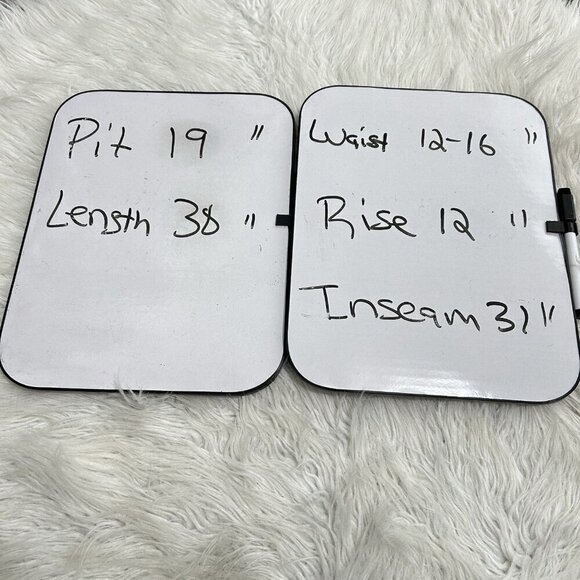 Pit 19 "
Length 38 "
Waist 12-16 "
Rise 12 "
Inseam 31"